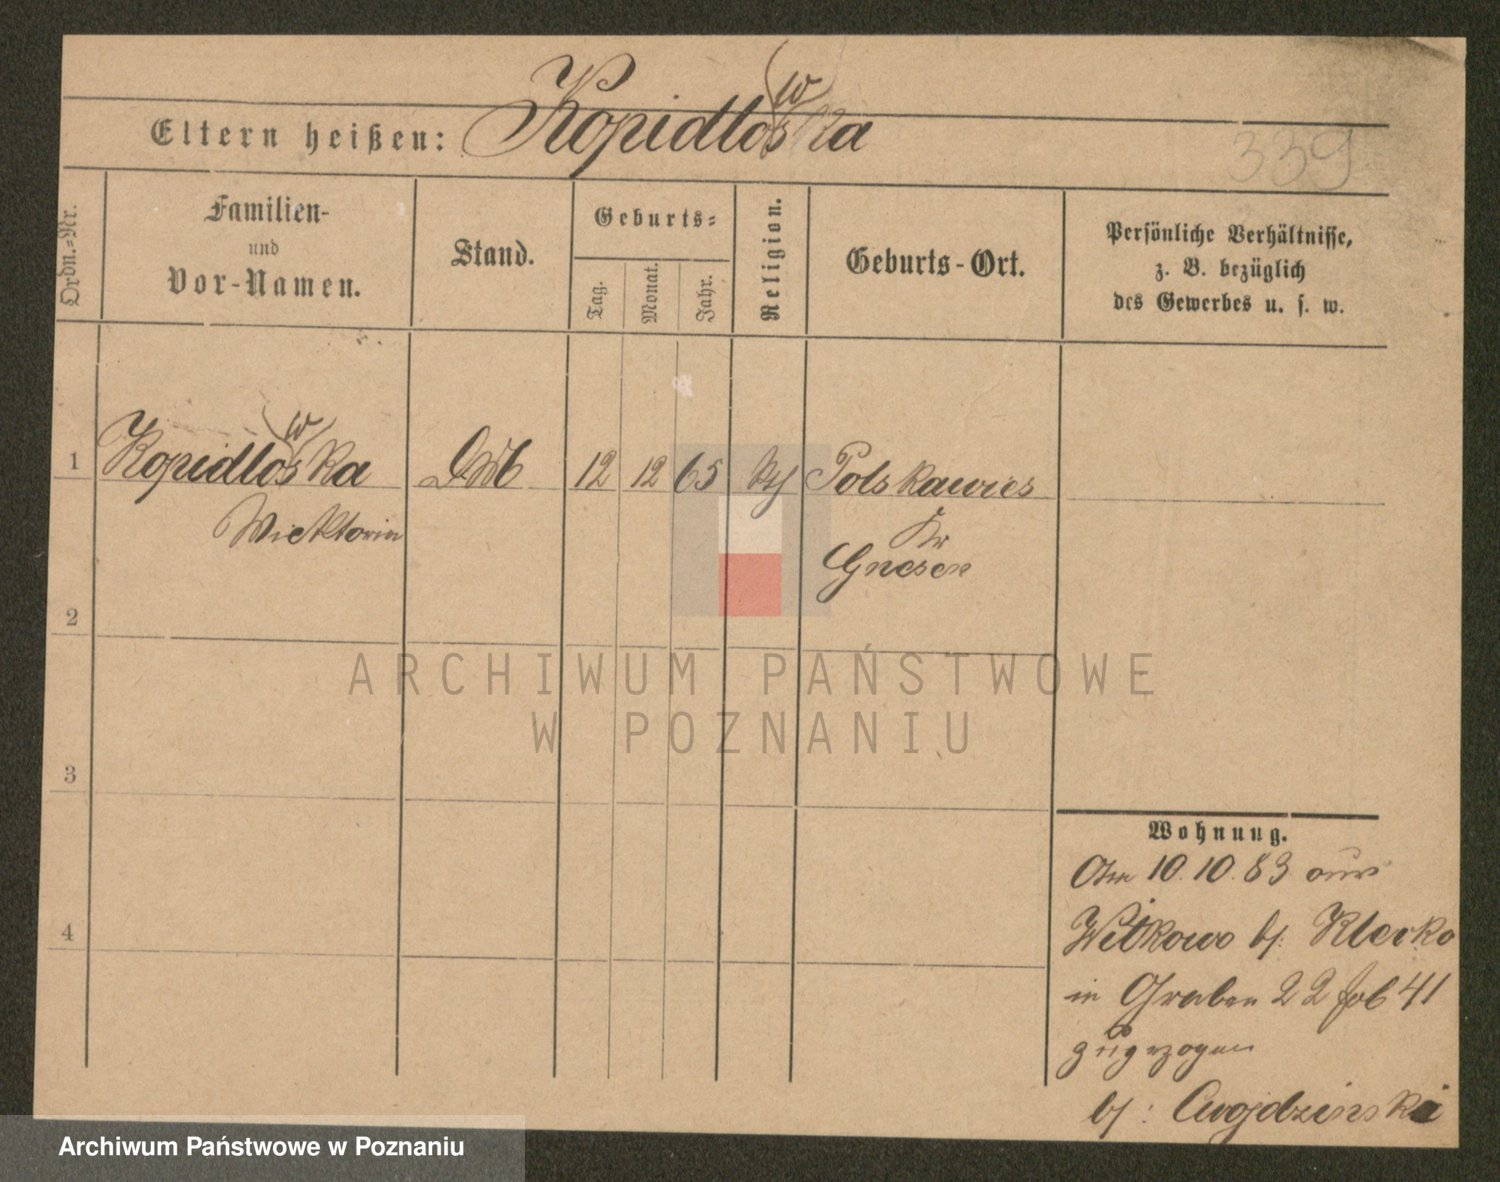 Kopidlowska
Eltern heißen:
339
Ordn.=Nr.
Familien-
und
Vor-Namen.
Stand.
Geburts=
Tag.
Monat.
Jahr.
Religion.
Geburts-Ort.
Persönliche Verhältnisse,
z. B. bezüglich
des Gewerbes u. s. w.
1
Kopidlowska
Wicktoria
12
12
65
kth
Polskawies
Kr
Gnesen
2
3
4
Wohnung.
Am 10.10.83 aus
Witkowo bh: Klecko
in Graben 22 Job 41
zugezogen
bh: Cwojdzinski
ARCHIWUM PAŃSTWOWE
W POZNANIU
Archiwum Państwowe w Poznaniu